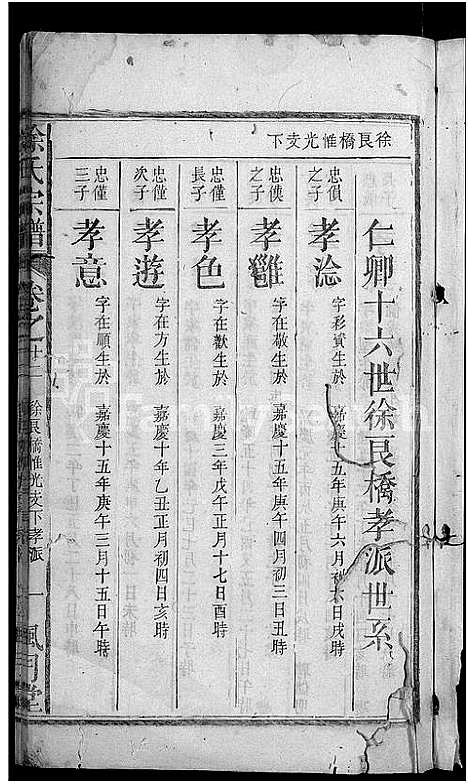 徐良橋惟光支下
仁卿十六世徐良橋孝派世系
忠傎之子
孝淰
字彩資生於嘉慶十五年庚午六月初六日戌時
忠傸之子
孝雞
字在明生於嘉慶十五年庚午四月初三日丑時
忠僅長子
孝色
字在歡生於嘉慶三年戊午正月十七日酉時
忠僅次子
孝遊
字在方生於嘉慶十年乙丑正月初四日亥時
忠僅三子
孝意
字在順生於嘉慶十五年庚午三月十五日午時
徐氏宗譜
卷之廿二
徐良橋惟光支下孝派
一
風月堂